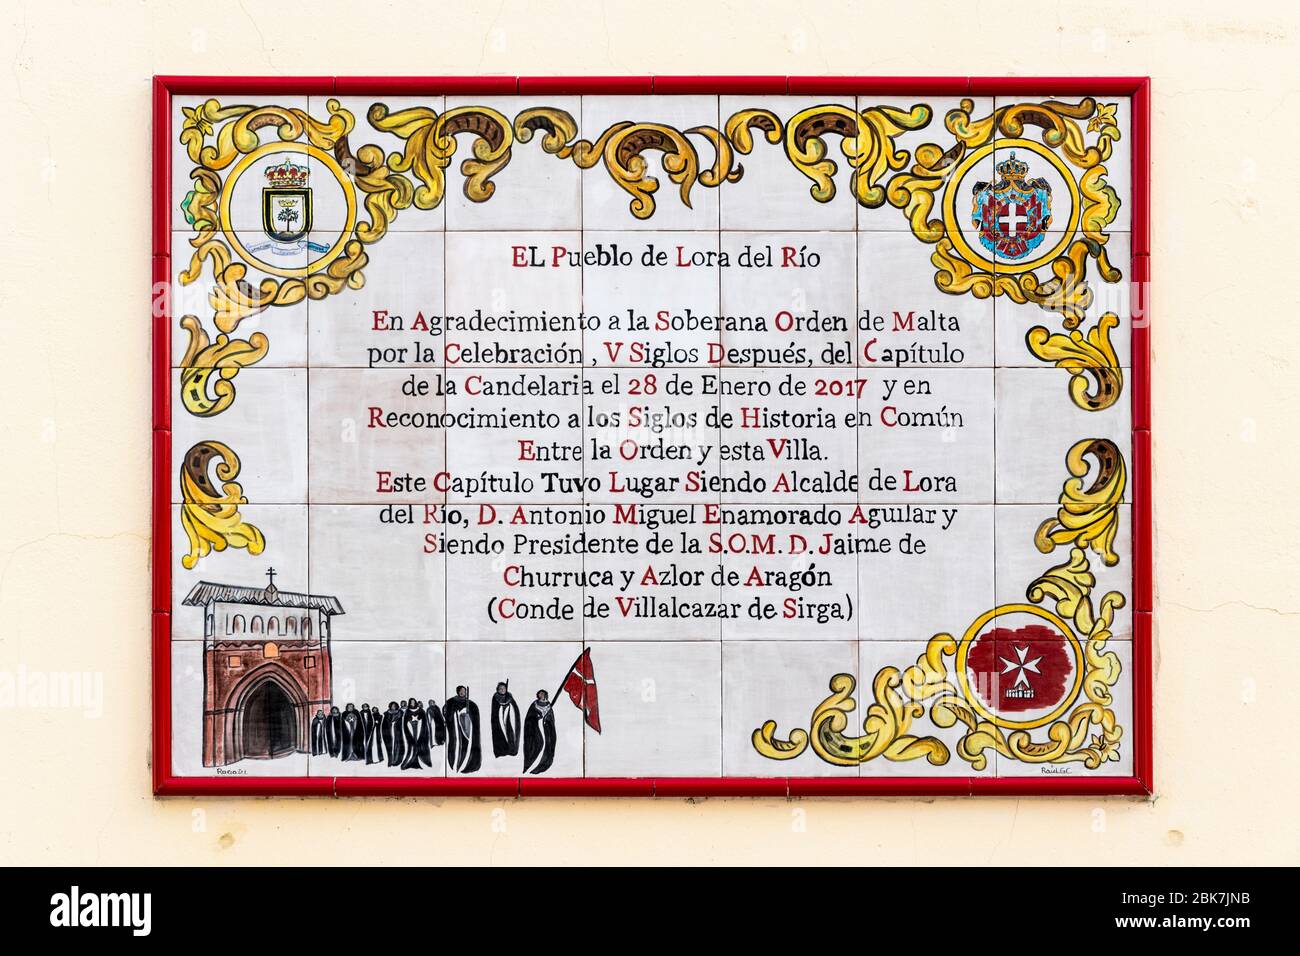 EL Pueblo de Lora del Río
En Agradecimiento a la Soberana Orden de Malta
por la Celebración, V Siglos Después, del Capítulo
de la Candelaria el 28 de Enero de 2017 y en
Reconocimiento a los Siglos de Historia en Común
Entre la Orden y esta Villa.
Este Capítulo Tuvo Lugar Siendo Alcalde de Lora
del Río, D. Antonio Miguel Enamorado Aguilar y
Siendo Presidente de la S.O.M. D. Jaime de
Churruca y Azlor de Aragón
(Conde de Villalcazar de Sirga)
Raúl G.C
alamy
alamy
alamy
Image ID: 2BK7JNB
www.alamy.com